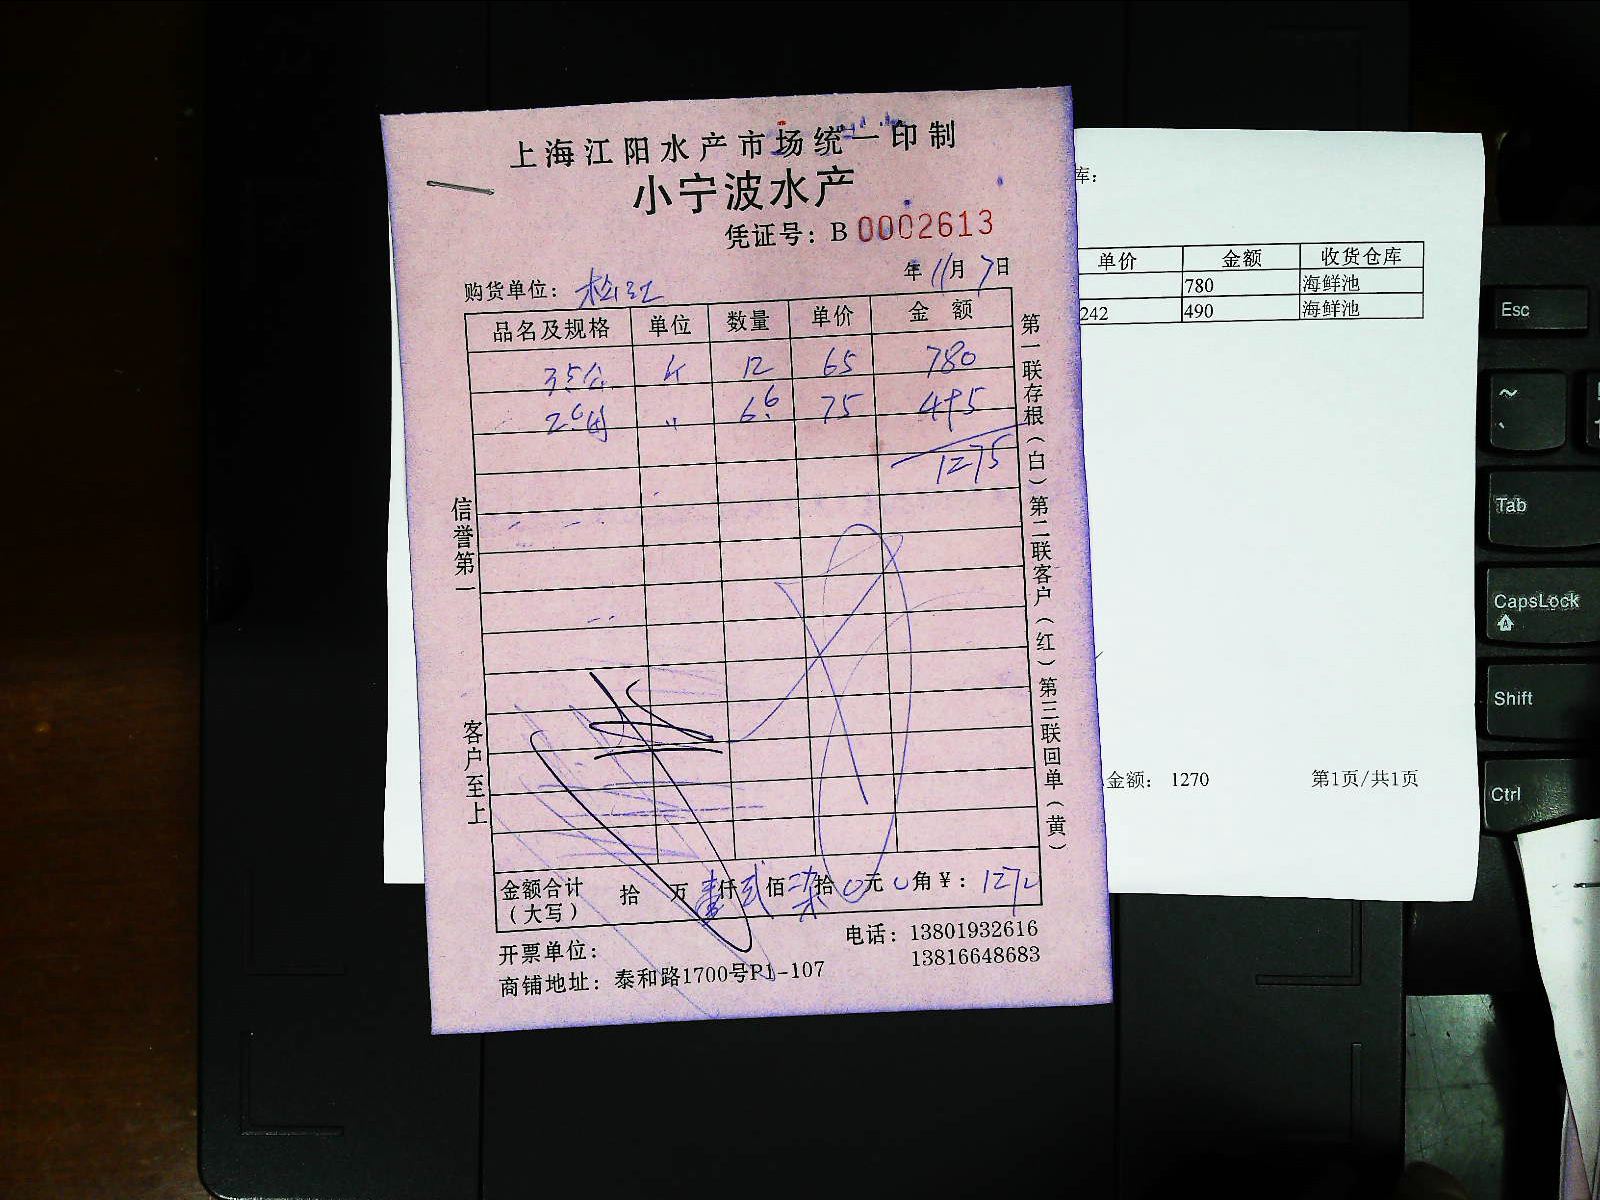 上海江阳水产市场统一印制
小宁波水产
凭证号：B 0002613
购货单位：
年 11月 7日
品名及规格 单位 数量 单价 金 额
12 65 780
6.6 75 495
1275
信誉第一
客户至上
第一联存根（白）第二联客户（红）第三联回单（黄）
金额合计（大写） 拾 万 壹仟 贰佰 柒拾 0元 0角 ¥：1270
开票单位：
电话：13801932616
13816648683
商铺地址：泰和路1700号P1-107
库：
单价 金额 收货仓库
780 海鲜池
242 490 海鲜池
金额： 1270 第1页/共1页
Esc
~
Tab
CapsLock
Shift
Ctrl